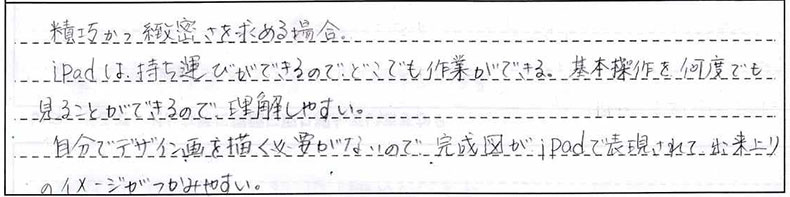 精巧かつ緻密さを求める場合。
iPadは、持ち運びができるので、どこでも作業ができる。基本操作を何度でも
見ることができるので、理解しやすい。
自分でデザイン画を描く必要がないので、完成図がiPadで表現されて、出来上り
のイメージがつかみやすい。